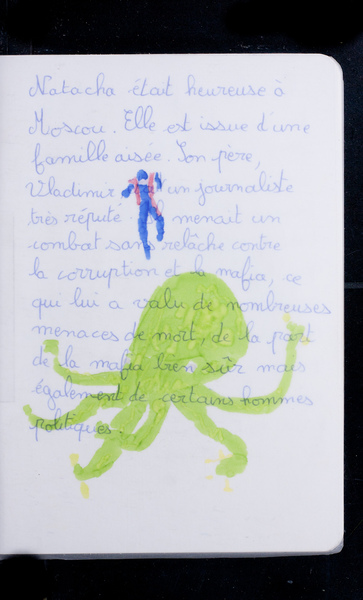 Natacha était heureuse à
Moscou. Elle est issue d'une
famille aisée. Son père,
Vladimir un journaliste
très réputé menait un
combat sans relâche contre
la corruption et la mafia, ce
qui lui a valu de nombreuses
menaces de mort, de la part
de la mafia bien sûr mais
également de certains hommes
politiques.